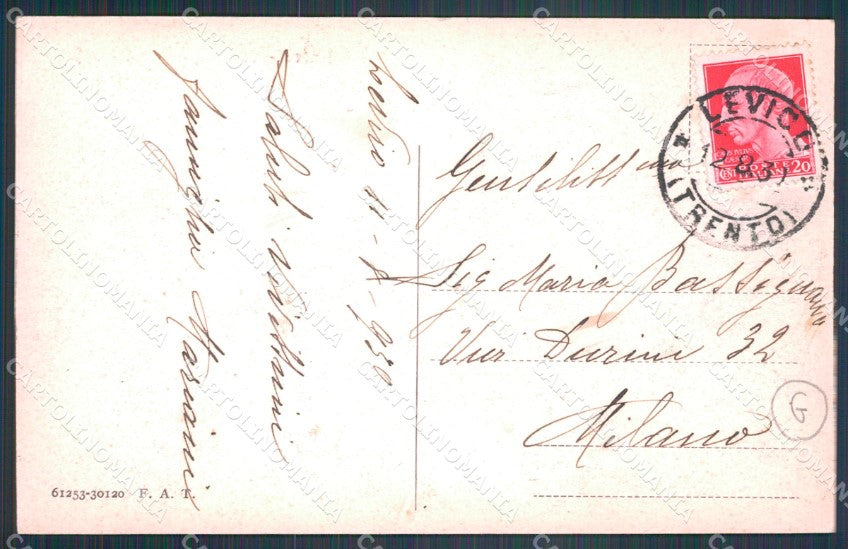 Levico 11-8-930
Saluti vivissimi
Famiglia Mariani
Gentiliss mo
Sig Mario Bassignano
Via Durini 32
Milano
LEVICO
12.8.3
(TRENTO)
POSTE
CENT. 20
G
61253-30120 F. A. T.
CARTOLINOMANIA